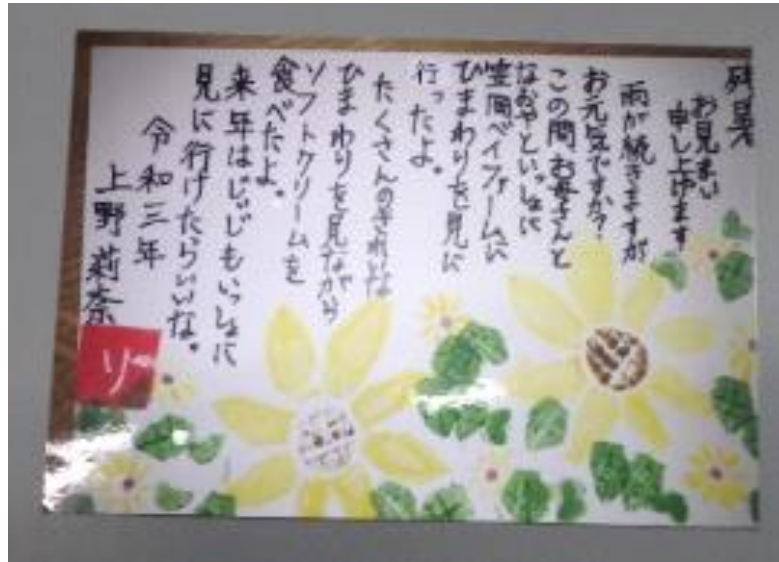 残暑
お見まい
申し上げます
雨が続きますが
お元気ですか?
この間お母さんと
なおやといっしょに
笠岡ベイファームに
ひまわりを見に
行ったよ。
たくさんのきれいな
ひまわりを見ながら
ソフトクリームを
食べたよ。
来年はじぃじもいっしょに
見に行けたらいいな。
令和三年
上野莉奈
り